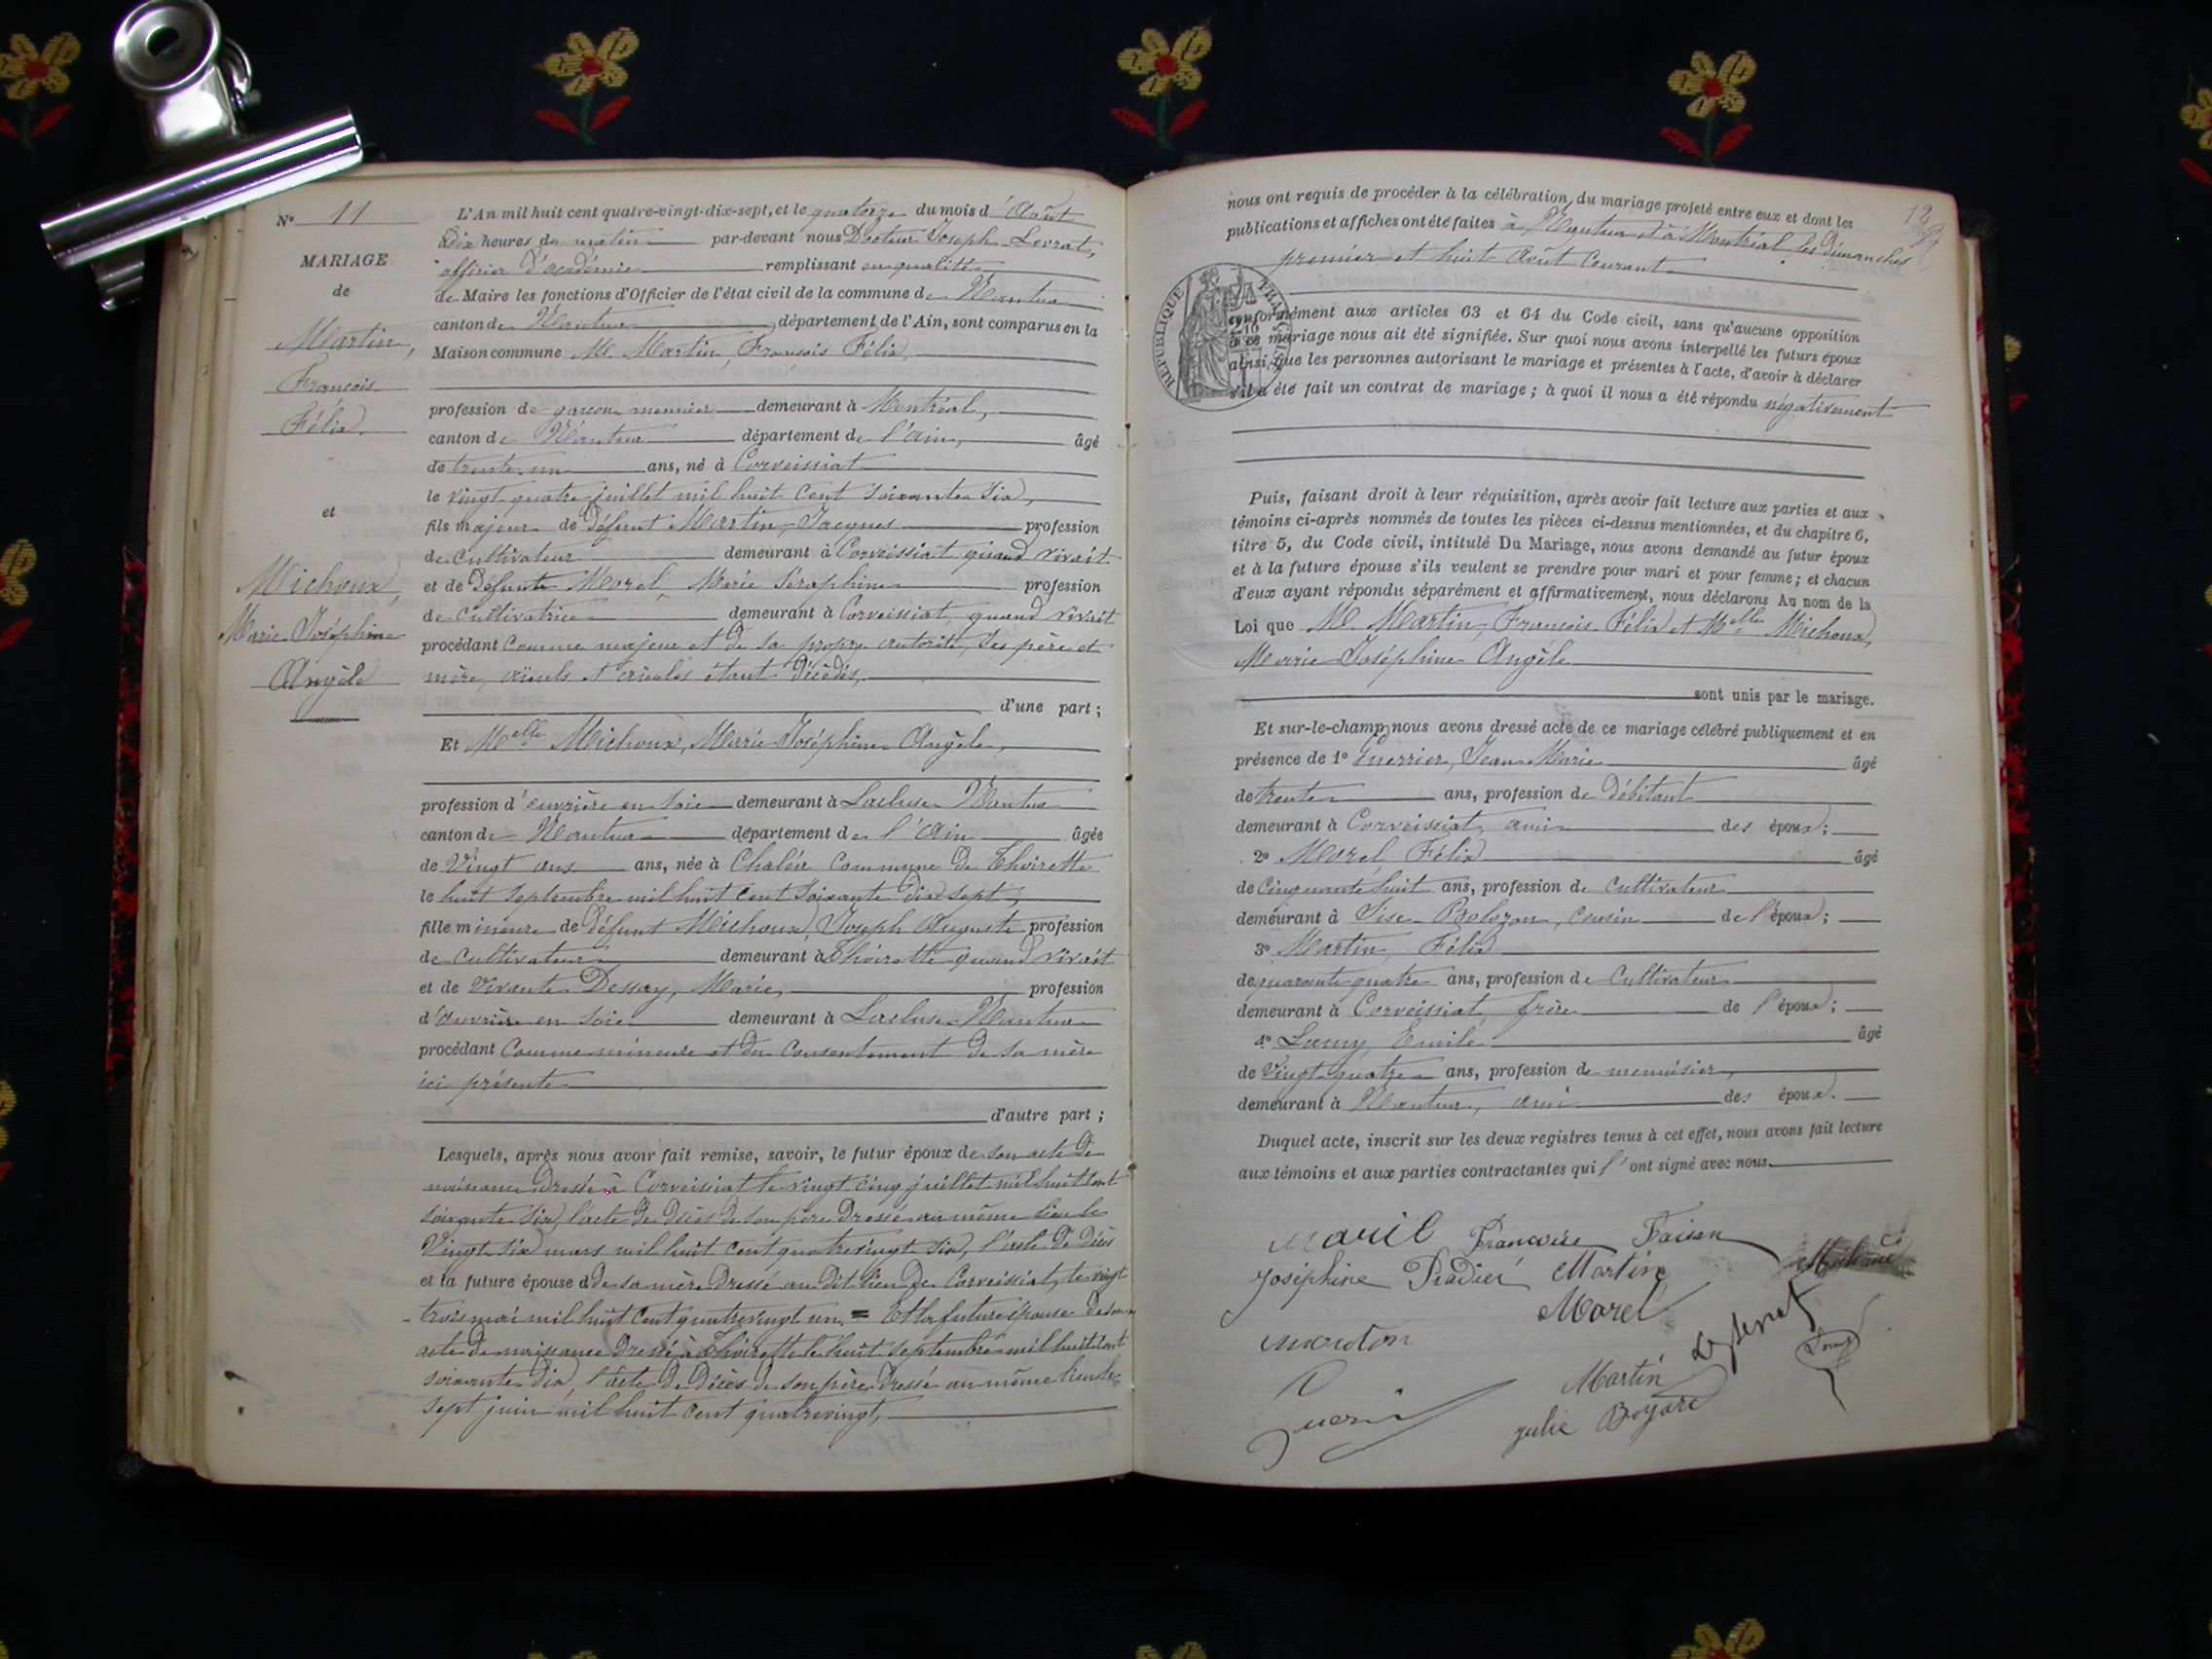 Nº 11
MARIAGE
de
Martin,
François
Félix
et
Michoux,
Marie Joséphine
Angèle
L'An mil huit cent quatre-vingt-dix-sept, et le quatorze du mois d'Août
dix heures du matin par-devant nous Docteur Joseph Levrat,
officier d'académie remplissant en qualité
de Maire les fonctions d'Officier de l'état civil de la commune de Nantua
canton de Nantua département de l'Ain, sont comparus en la
Maison commune M. Martin, François Félix,
profession de garçon meunier demeurant à Montréal,
canton de Nantua département de l'Ain, âgé
de trente un ans, né à Corveissiat
le vingt quatre juillet mil huit cent soixante six,
fils majeur de défunt Martin, Jacques profession
de cultivateur demeurant à Corveissiat quand vivait
et de défunte Morel, Marie Séraphine profession
de cultivatrice demeurant à Corveissiat, quand vivait
procédant comme majeur et de sa propre autorité, ses père et
mère, aïeuls et aïeules étant décédés,
d'une part ;
Et Melle Michoux, Marie Joséphine Angèle,
profession d'ouvrière en soie demeurant à Lacluse Nantua
canton de Nantua département de l'Ain âgée
de vingt ans ans, née à Chaléa commune de Thoirette
le huit septembre mil huit cent soixante dix sept,
fille mineure de défunt Michoux, Joseph Auguste profession
de cultivateur demeurant à Thoirette quand vivait
et de vivante Dessay, Marie, profession
d'ouvrière en soie demeurant à Lacluse Nantua
procédant comme mineure et du consentement de sa mère
ici présente
d'autre part ;
Lesquels, après nous avoir fait remise, savoir, le futur époux de son acte de
naissance dressé à Corveissiat le vingt cinq juillet mil huit cent
soixante six, l'acte de décès de son père dressé au même lieu le
vingt six mars mil huit cent quatrevingt six, l'acte de décès
et la future épouse d de sa mère dressé au dit lieu de Corveissiat, le vingt
trois mai mil huit cent quatrevingt un = Et la future épouse de son
acte de naissance dressé à Thoirette le huit septembre mil huit cent
soixante dix, l'acte de décès de son père dressé au même lieu le
sept juin mil huit cent quatrevingt,
12
nous ont requis de procéder à la célébration du mariage projeté entre eux et dont les
publications et affiches ont été faites à Nantua et à Montréal les dimanches
premier et huit Août courant
RÉPUBLIQUE FRANÇAISE
conformément aux articles 63 et 64 du Code civil, sans qu'aucune opposition
à ce mariage nous ait été signifiée. Sur quoi nous avons interpellé les futurs époux
ainsi que les personnes autorisant le mariage et présentes à l'acte, d'avoir à déclarer
s'il a été fait un contrat de mariage ; à quoi il nous a été répondu négativement
Puis, faisant droit à leur réquisition, après avoir fait lecture aux parties et aux
témoins ci-après nommés de toutes les pièces ci-dessus mentionnées, et du chapitre 6,
titre 5, du Code civil, intitulé Du Mariage, nous avons demandé au futur époux
et à la future épouse s'ils veulent se prendre pour mari et pour femme ; et chacun
d'eux ayant répondu séparément et affirmativement, nous déclarons Au nom de la
Loi que M. Martin, François Félix et Melle Michoux,
Marie Joséphine Angèle
sont unis par le mariage.
Et sur-le-champ nous avons dressé acte de ce mariage célébré publiquement et en
présence de 1º Guerrier, Jean Marie âgé
de trente ans, profession de débitant
demeurant à Corveissiat, ami des époux ;
2º Morel Félix âgé
de cinquante huit ans, profession de cultivateur
demeurant à Sise Bolozon, cousin de l'époux ;
3º Martin, Félix
de quarante quatre ans, profession de cultivateur
demeurant à Corveissiat, frère de l'époux ;
4º Lamy, Emile âgé
de vingt quatre ans, profession de menuisier,
demeurant à Nantua, ami des époux.
Duquel acte, inscrit sur les deux registres tenus à cet effet, nous avons fait lecture
aux témoins et aux parties contractantes qui l'ont signé avec nous.
Joséphine Martin
Morel
Martin
julie Boyard